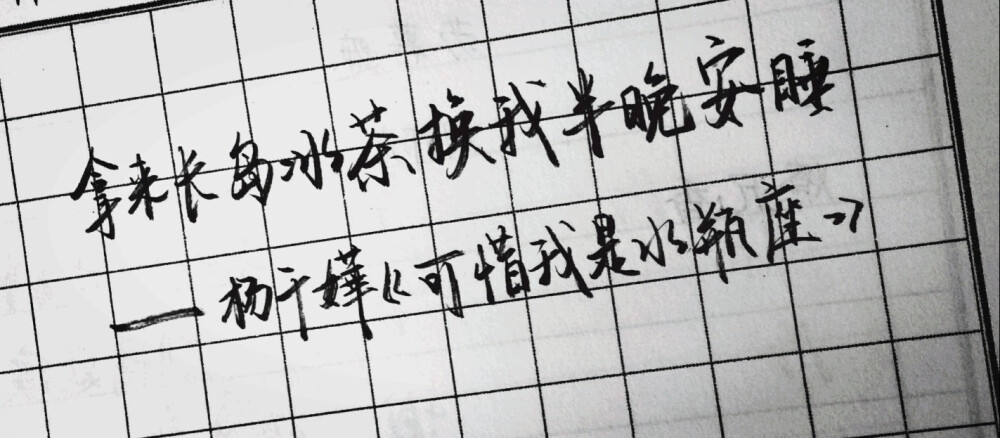 拿来长岛冰茶换我半晚安睡
——杨千嬅《可惜我是水瓶座》